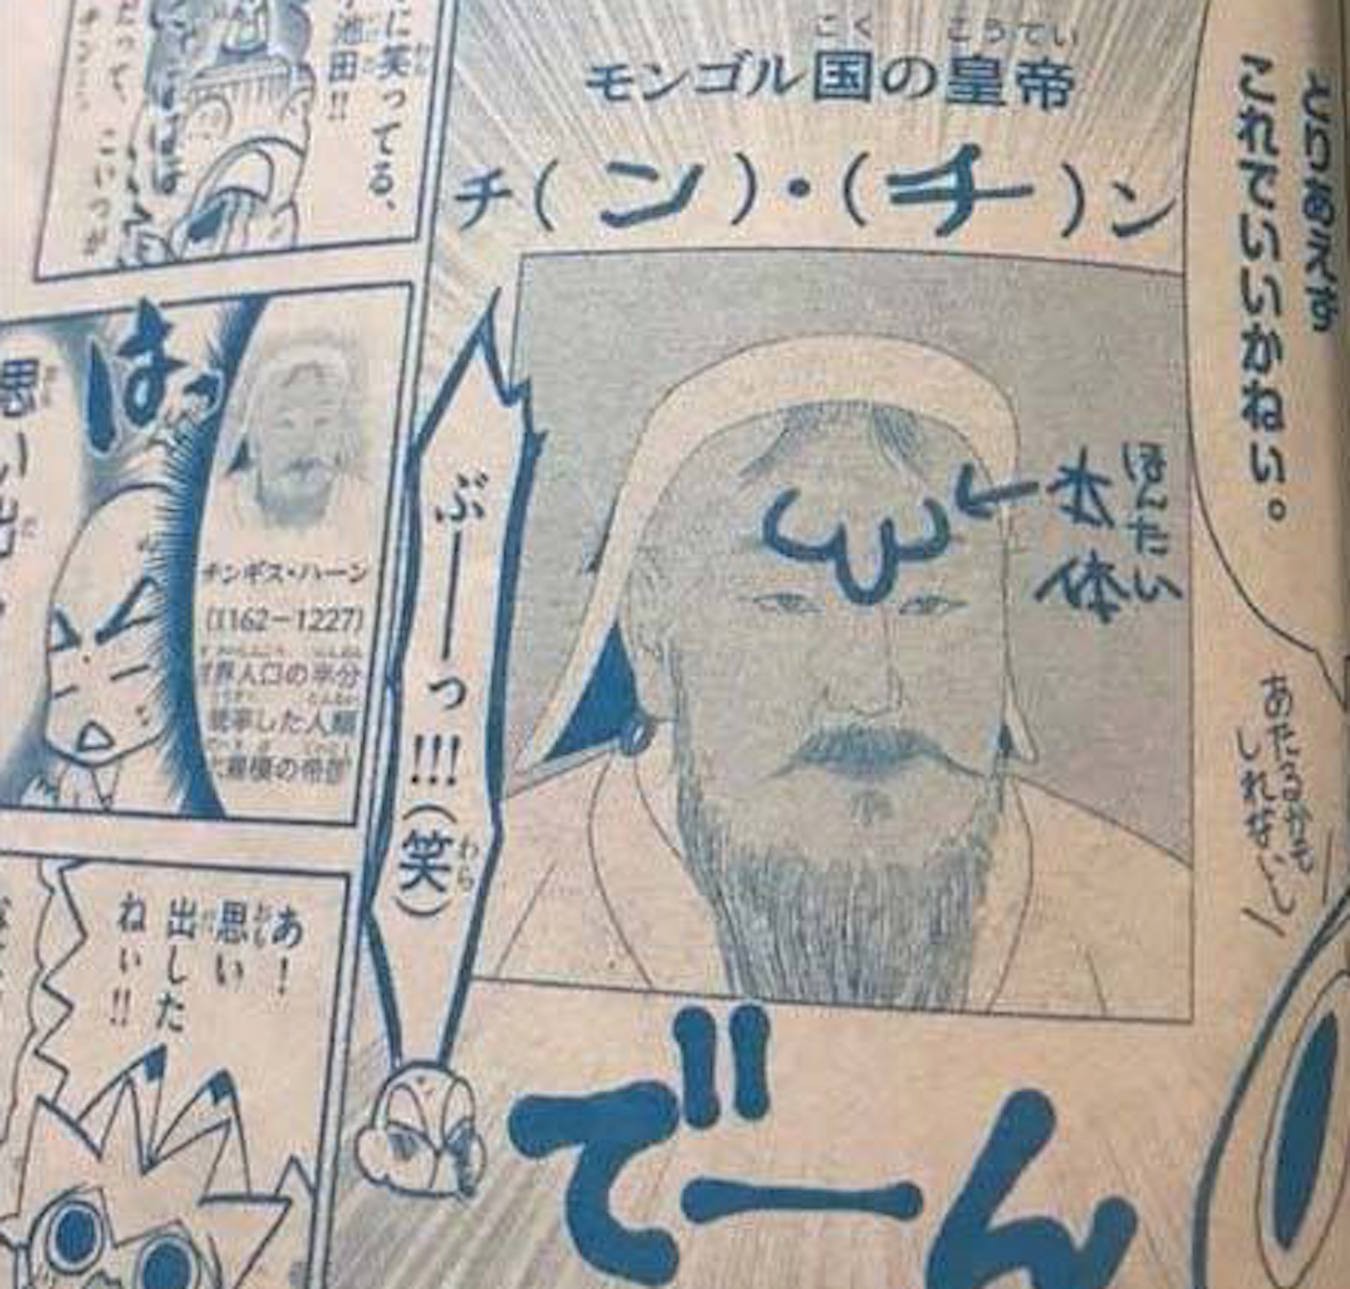 とりあえず
これでいいかねい。
あたるかも
しれないし
モンゴル国の皇帝
こく こうてい
チ(ン)・(チ)ン
ほんたい
本体
ぶーーっ!!!(笑)
わら
でーん
に笑ってる、
池田!!
はっ
チンギス・ハーン
(1162－1227)
界人口の半分
した人類
規模の帝国
思い出
あ!
思い
出した
ねぃ!!